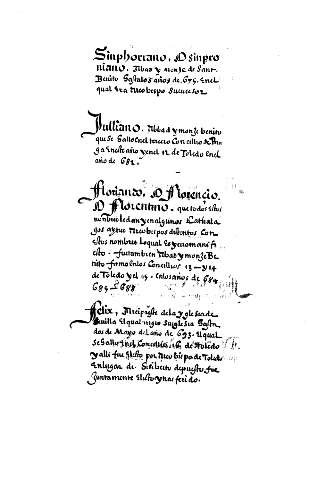 Sinphoriano, O sinpro
niano. Abad y monje de Sant
Benito hasta los años de 675. en el
qual era Arcobispo su sucesor
Julliano. Abbad y monje benito
que se hallo en el tercero Concilio de
en este año y en el 12 de Toledo en el
año de 681.
Floriando. O Florencio.
O Florentino. que todos estos
nonbres le dan y en algunos Cathalo
gos ay tres Arcobispos distintos con
estos nonbres lo qual es yerro manifi
esto. fue tambien Abad y monje Be
nito firma en los Concilios 13 y 14
de Toledo y el 15. en los años de 684
685 688
Felix, Arcipreste de la yglesia de
Sevilla el qual rigio su yglesia hasta
dos de Mayo del año de 693. el qual
se hallo en el Concilio 16 de Toledo
y alli fue electo por Arcobispo de Toledo
en lugar de Sisiberto depuesto fue
juntamente electo y nas ferido.